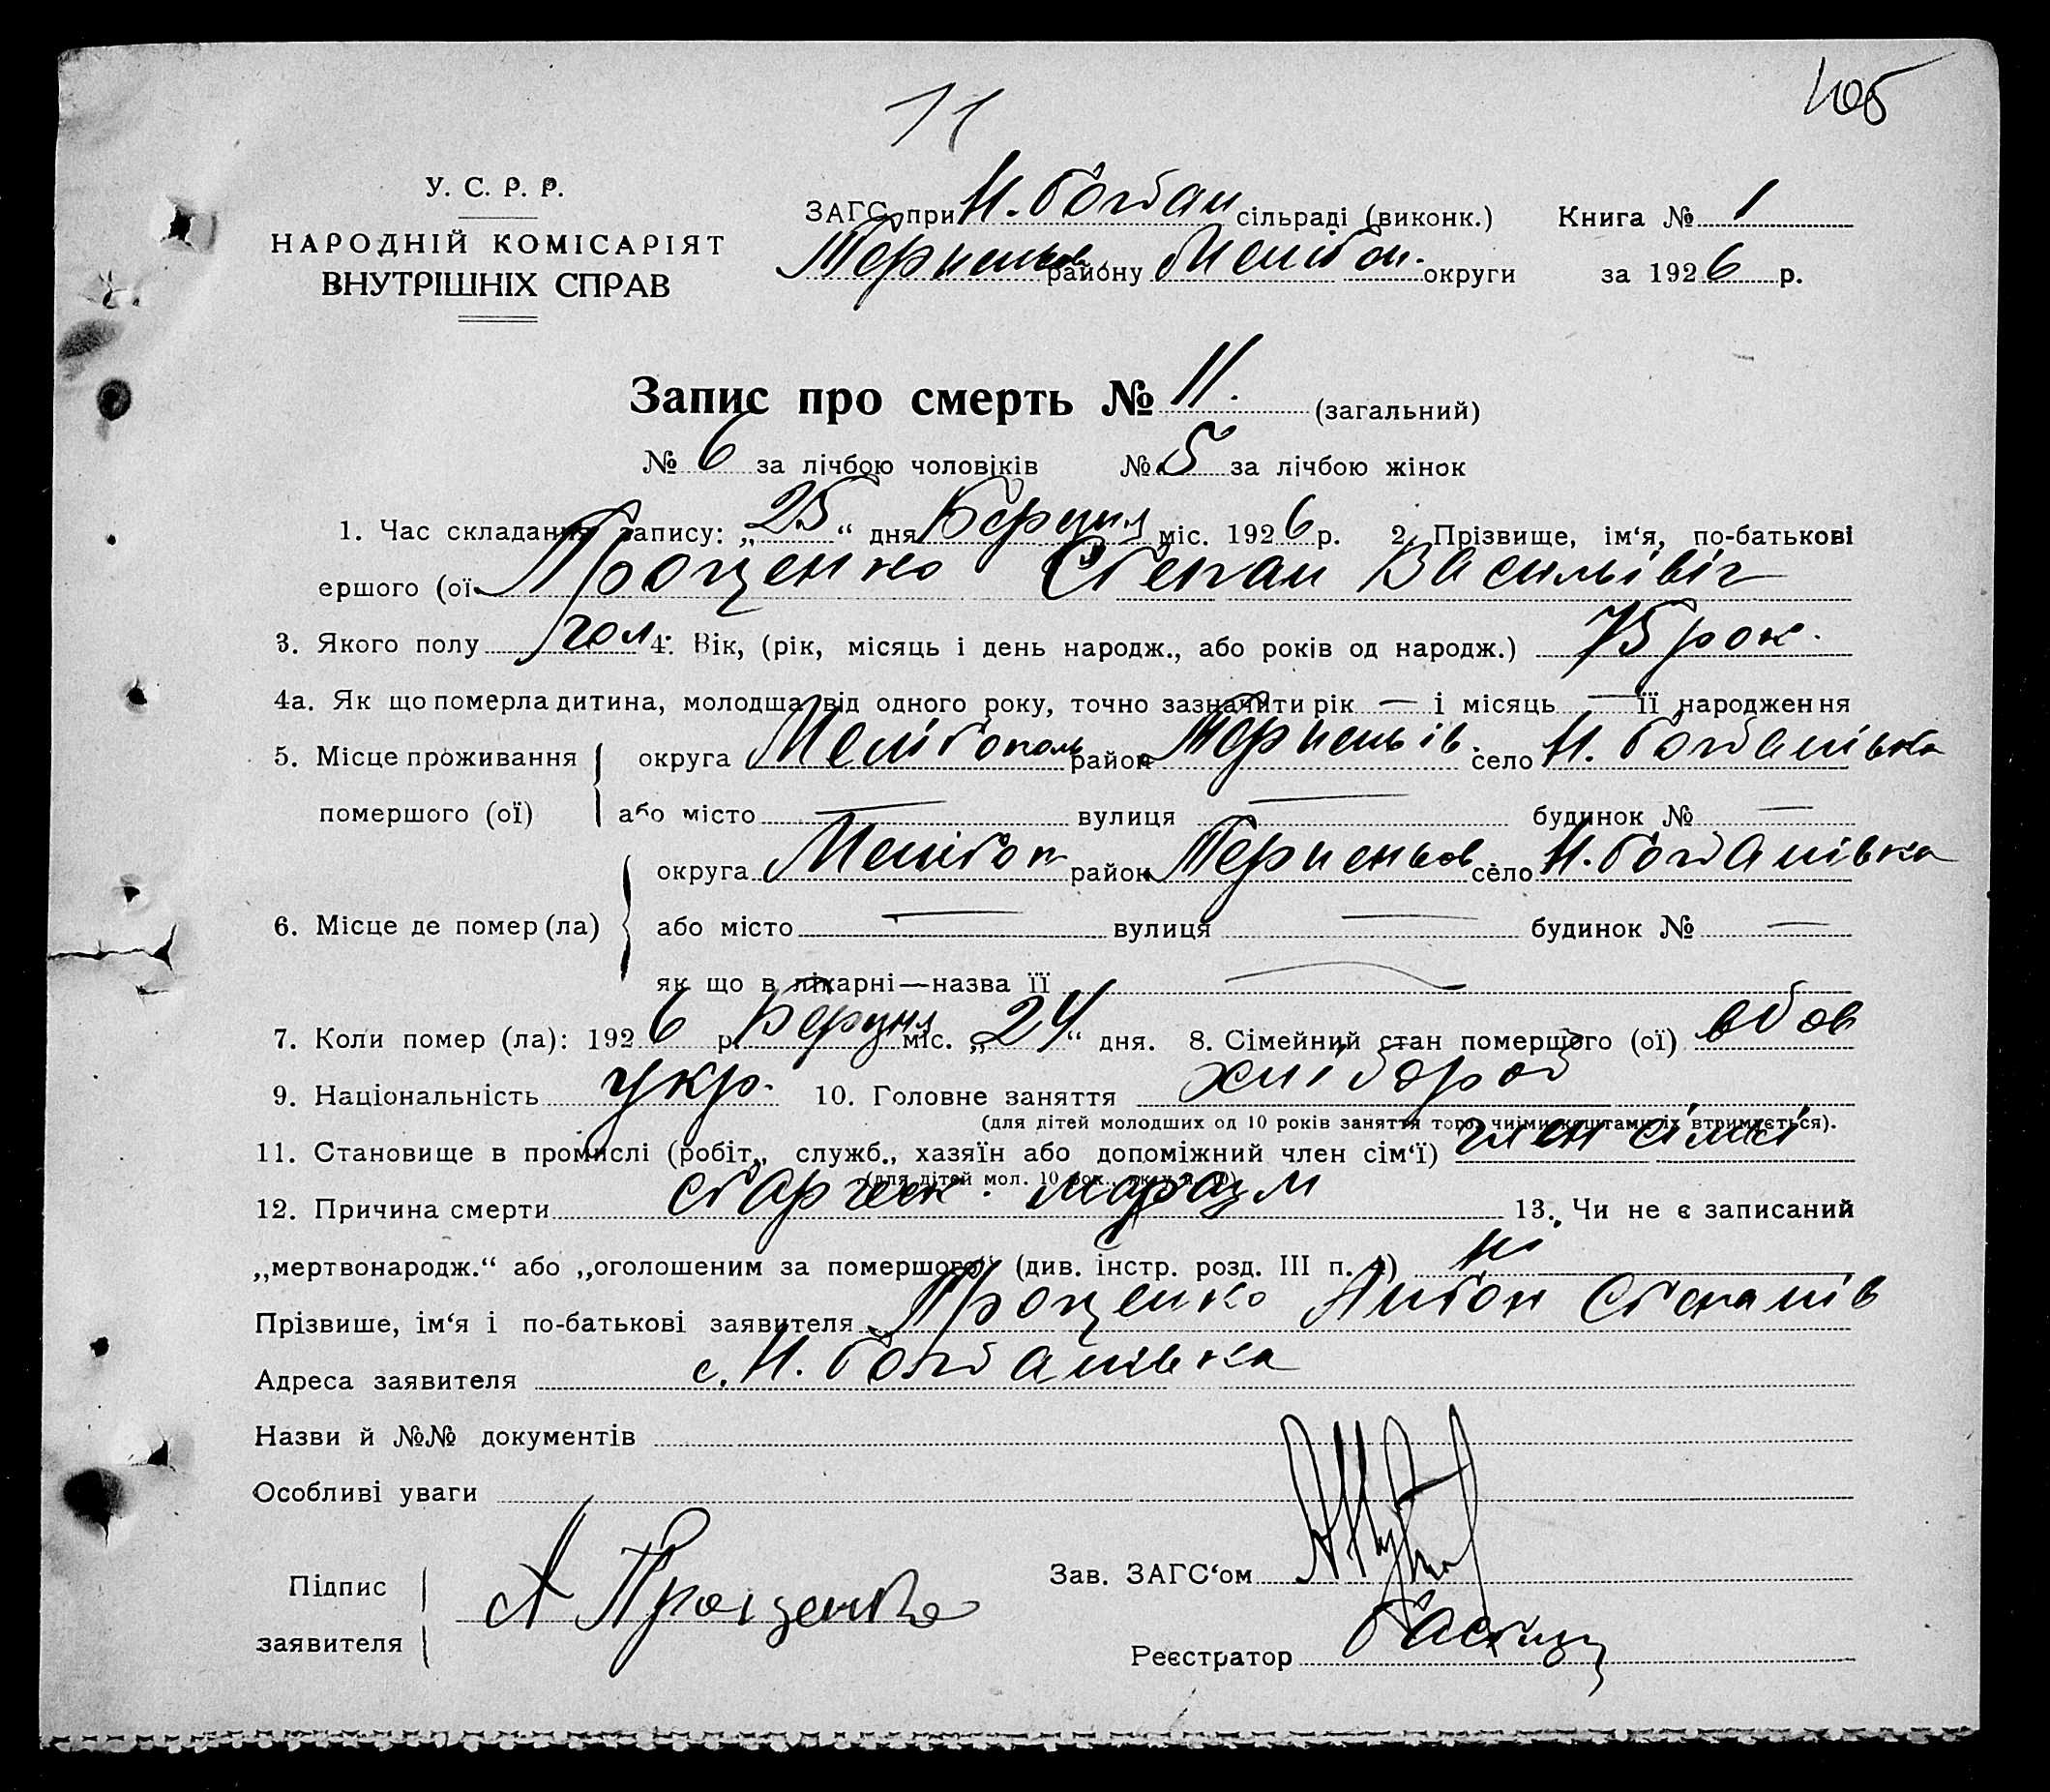 11
105
У. С. Р. Р.
НАРОДНІЙ КОМІСАРІЯТ
ВНУТРІШНІХ СПРАВ
ЗАГС при Н. Богдан сільраді (виконк.) Книга № 1
Терпеньов району Мелітоп. округи за 1926 р.
Запис про смерть № 11. (загальний)
№ 6 за лічбою чоловіків № 5 за лічбою жінок
1. Час складання запису: „25“ дня Берузня міс. 1926 р. 2. Прізвище, ім‘я, по-батькові
ершого (ої Проценко Степан Васильівіч
3. Якого полу чол 4. Вік, (рік, місяць і день народж., або років од народж.) 75 рок.
4а. Як що померла дитина, молодша від одного року, точно зазначити рік — і місяць — її народження
5. Місце проживання округа Мелітополь район Терпеньів. село Н. Богданівка
помершого (ої) або місто — вулиця — будинок № —
округа Мелітоп район Терпеньов село Н. Богданівка
6. Місце де помер (ла) або місто — вулиця — будинок № —
як що в лікарні—назва її —
7. Коли помер (ла): 1926 р. Берузня міс. „24“ дня. 8. Сімейний стан помершого (ої) вдов
9. Національність укр. 10. Головне заняття хлібороб
(для дітей молодших од 10 років заняття того, чиїми коштами їх втримується).
11. Становище в промислі (робіт., служб., хазяїн або допоміжний член сім‘ї) член сімьі
(для дітей мол. 10 рок., як у п. 10)
12. Причина смерти старческ. маразм 13. Чи не є записаний
„мертвонародж.“ або „оголошеним за помершого“ (див. інстр. розд. III п. 4) ні
Прізвише, ім‘я і по-батькові заявителя Проценко Антон Степанів
Адреса заявителя с. Н. Богданівка
Назви й №№ документів
Особливі уваги
Підпис
заявителя А Проценко
Зав. ЗАГС‘ом
Реєстратор